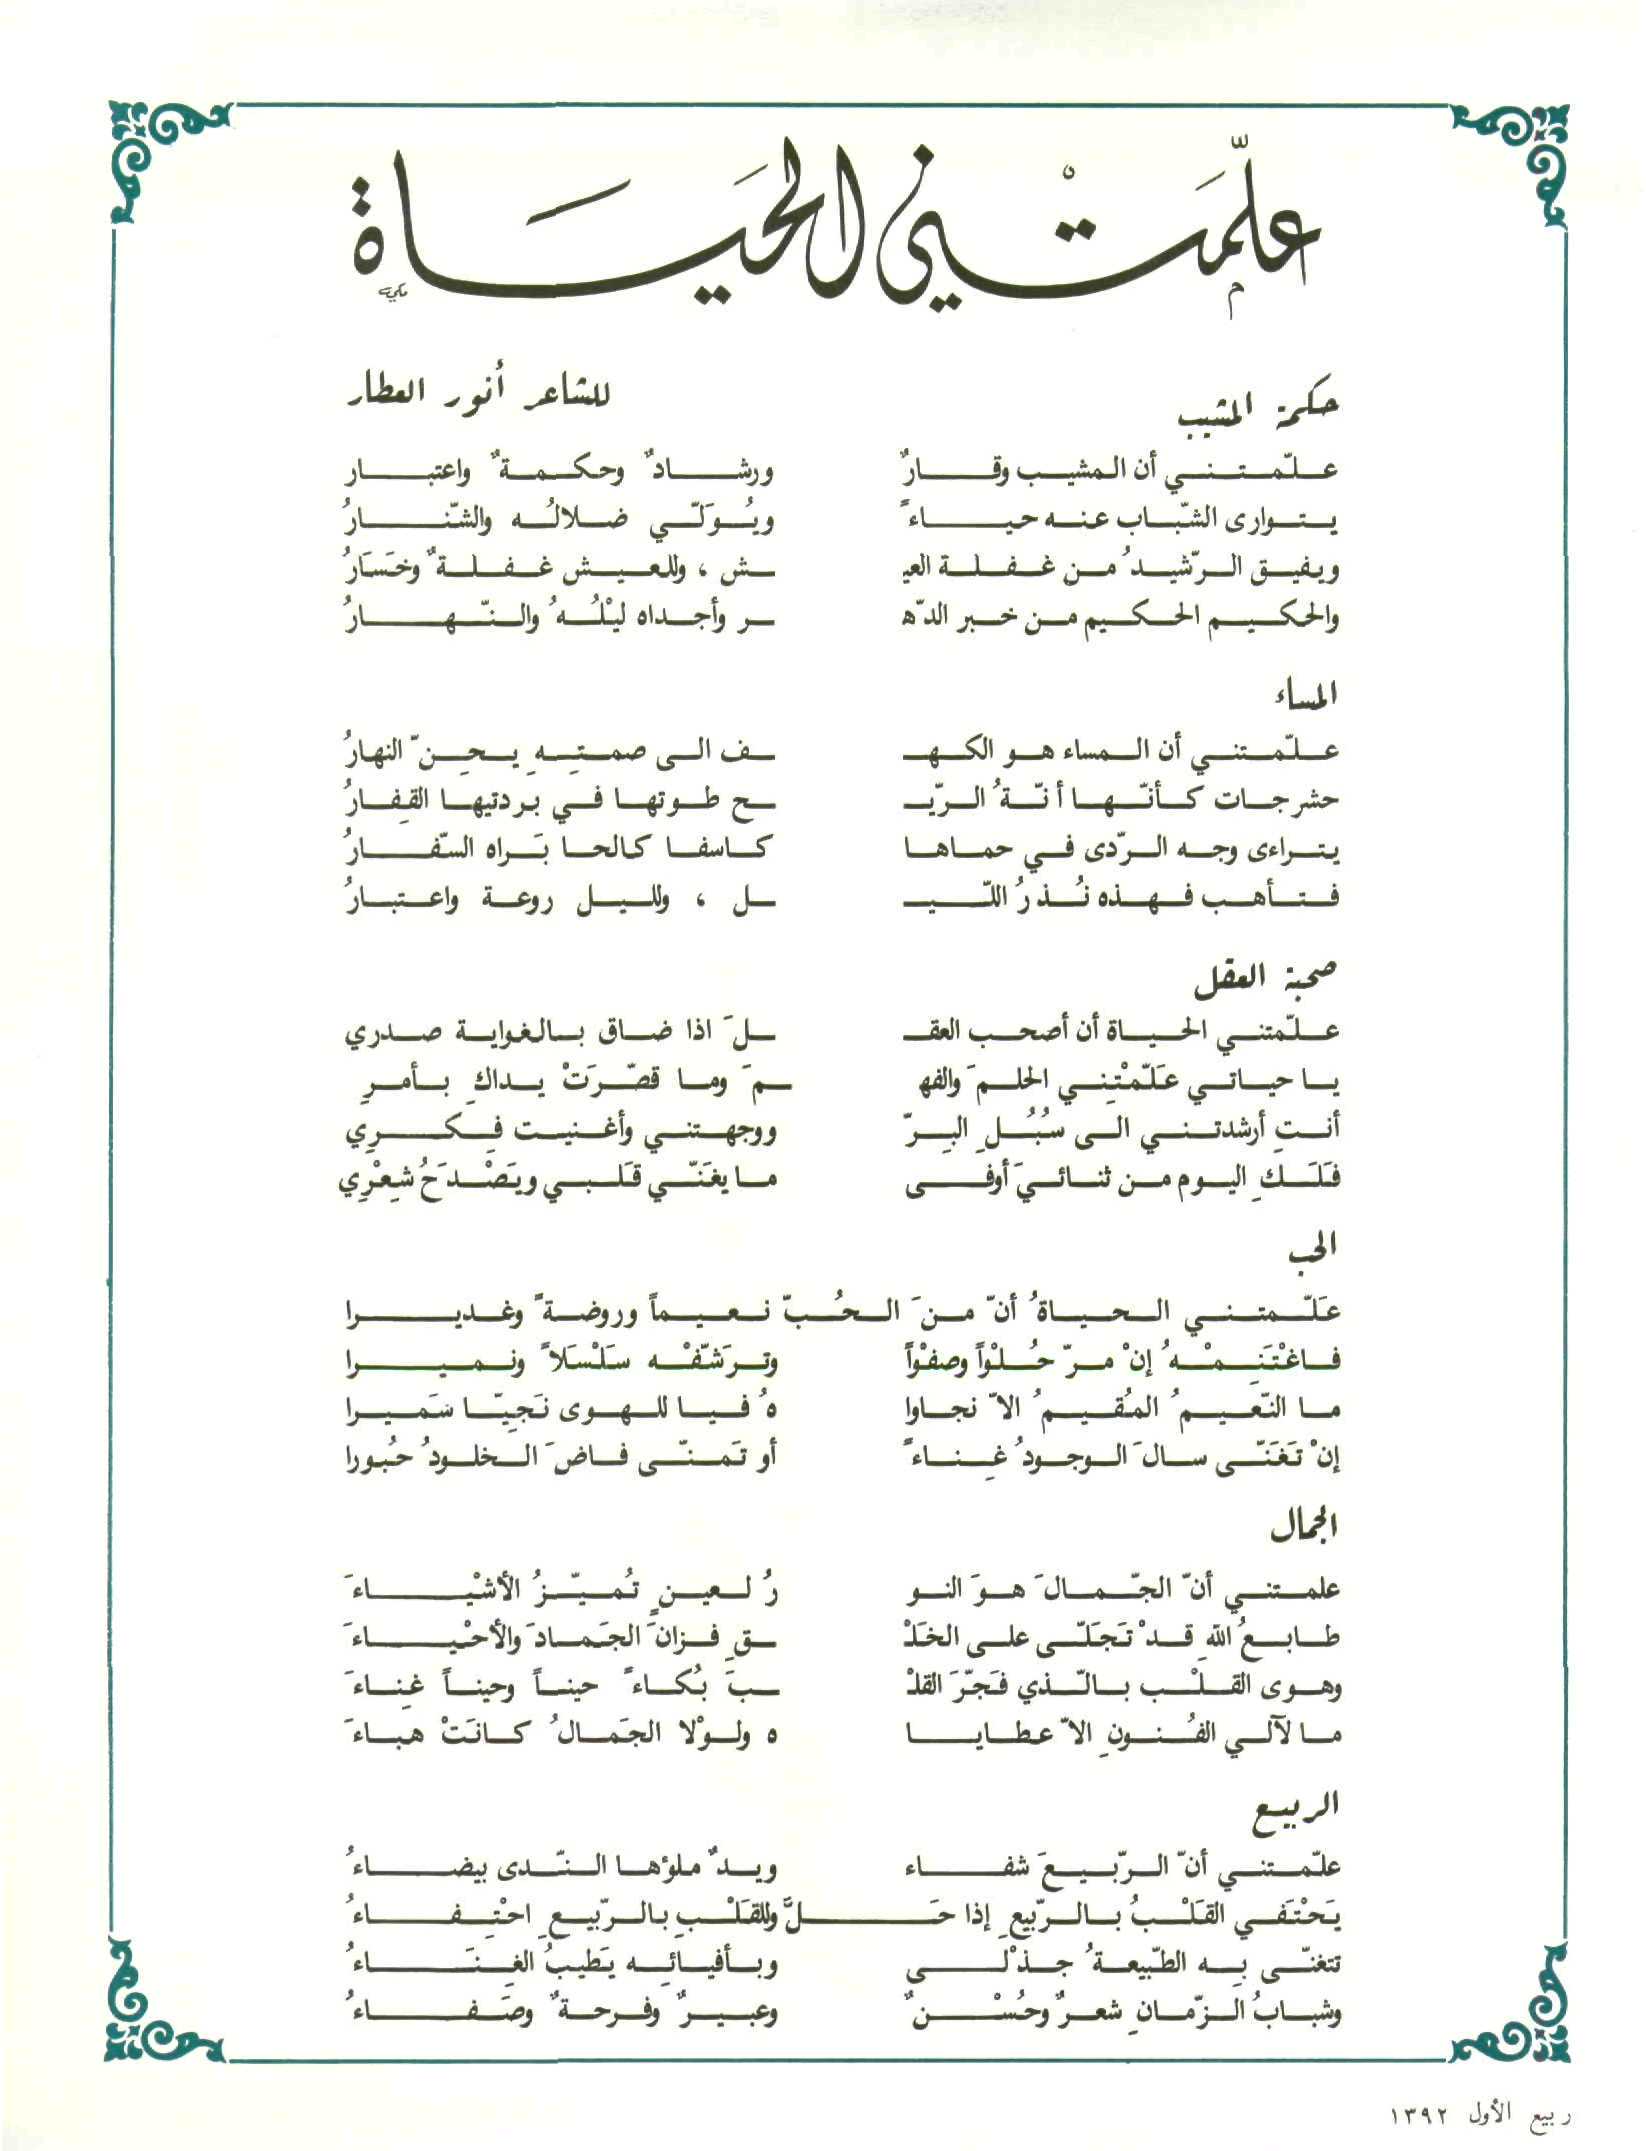 علّمتْني الحيَاة
حكمة المشيب للشاعر أنور العطار
علّمتني أن المشيب وقارٌ ورشادٌ وحكمةٌ واعتبار
يتوارى الشّباب عنه حياءً ويُوَلّي ضلالُه والشّنارُ
ويفيق الرّشيدُ من غفلة العيـ ـش ، وللعيش غفلةٌ وخَسَارُ
والحكيم الحكيم من خبر الدّهـ ـر وأجداه ليْلُهُ والنّهارُ
المساء
علّمتني أن المساء هو الكهـ ـف الى صمتِهِ يحِنّ النهارُ
حشرجات كأنّها أنّةُ الرّيـ ـح طوتها في بردتيها القِفارُ
يتراءى وجه الرّدى في حماها كاسفا كالحا بَراه السّفارُ
فتأهب فهذه نُذرُ اللّيـ ـل ، ولليل روعة واعتبارُ
صحبة العقل
علّمتني الحياة أن أصحب العقـ ـلَ اذا ضاق بالغواية صدري
يا حياتي عَلّمْتِني الحلمَ والفهـ ـمَ وما قصّرَتْ يداكِ بأمرِ
أنتِ أرشدتني الى سُبُلِ البِرّ ووجهتني وأغنيت فِكرِي
فَلَكِ اليوم من ثنائيَ أوفى ما يغَنّي قَلبي ويَصْدَحُ شِعْرِي
الحب
عَلّمتني الحياةُ أنّ منَ الحُبّ نعيماً وروضةً وغديرا
فاغْتَنِمْهُ إنْ مرّ حُلْواً وصفْواً وترَشّفْه سَلْسَلاً ونميرا
ما النّعيمُ المُقيمُ الاّ نجاوا هُ فيا للهوى نَجِيّا سَميرا
إنْ تَغَنّى سالَ الوجودُ غِناءً أو تَمنّى فاضَ الخلودُ حُبُورا
الجمال
علمتني أنّ الجّمالَ هوَ النو رُ لعينٍ تُميّزُ الأشْياءَ
طابعُ اللهِ قدْ تَجَلّى على الخَلْـ ـقِ فزانَ الجَمادَ والأحْياءَ
وهوى القلْب بالّذي فَجّرَ القلْـ ـبَ بُكاءً حيناً وحيناً غِناءَ
ما لآلي الفُنونِ الاّ عطايا ه ولوْلا الجَمالُ كانَتْ هباءَ
الربيع
علّمتني أنّ الرّبيعَ شفاء ويدٌ ملؤها النّدى بيضاءُ
يَحْتَفي القَلْبُ بالرّبيعِ إذا حَـ ـلَّ وللقَلْبِ بالرّبيعِ احْتِفاءُ
تتغنّى بِه الطّبيعةُ جذْلى وبأفيائِه يَطيبُ الغِنَاءُ
وشبابُ الزّمانِ شعرٌ وحُسْنٌ وعبيرٌ وفرحةٌ وصَفاءُ
ربيع الأول ١٣٩٢